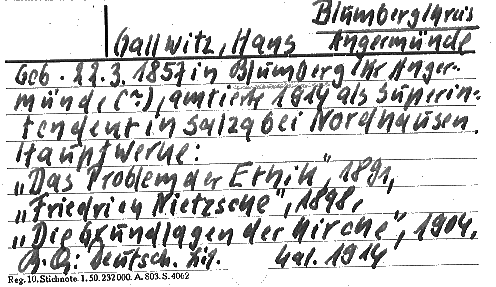 Blumberg/Kreis
Gallwitz, Hans Angermünde
Geb. 22.3.1857 in Blumberg Kr Anger-
münde (?), amtierte 1914 als Superin-
tendent in Salza bei Nordhausen.
Hauptwerke:
„Das Problem der Ethik", 1891,
„Friedrich Nietzsche", 1898,
„Die Grundlagen der Kirche", 1904.
Deutsch. Lit. Kal. 1914
Reg. 10. Stichnote. 1. 50. 232000. A. 803. S. 4062